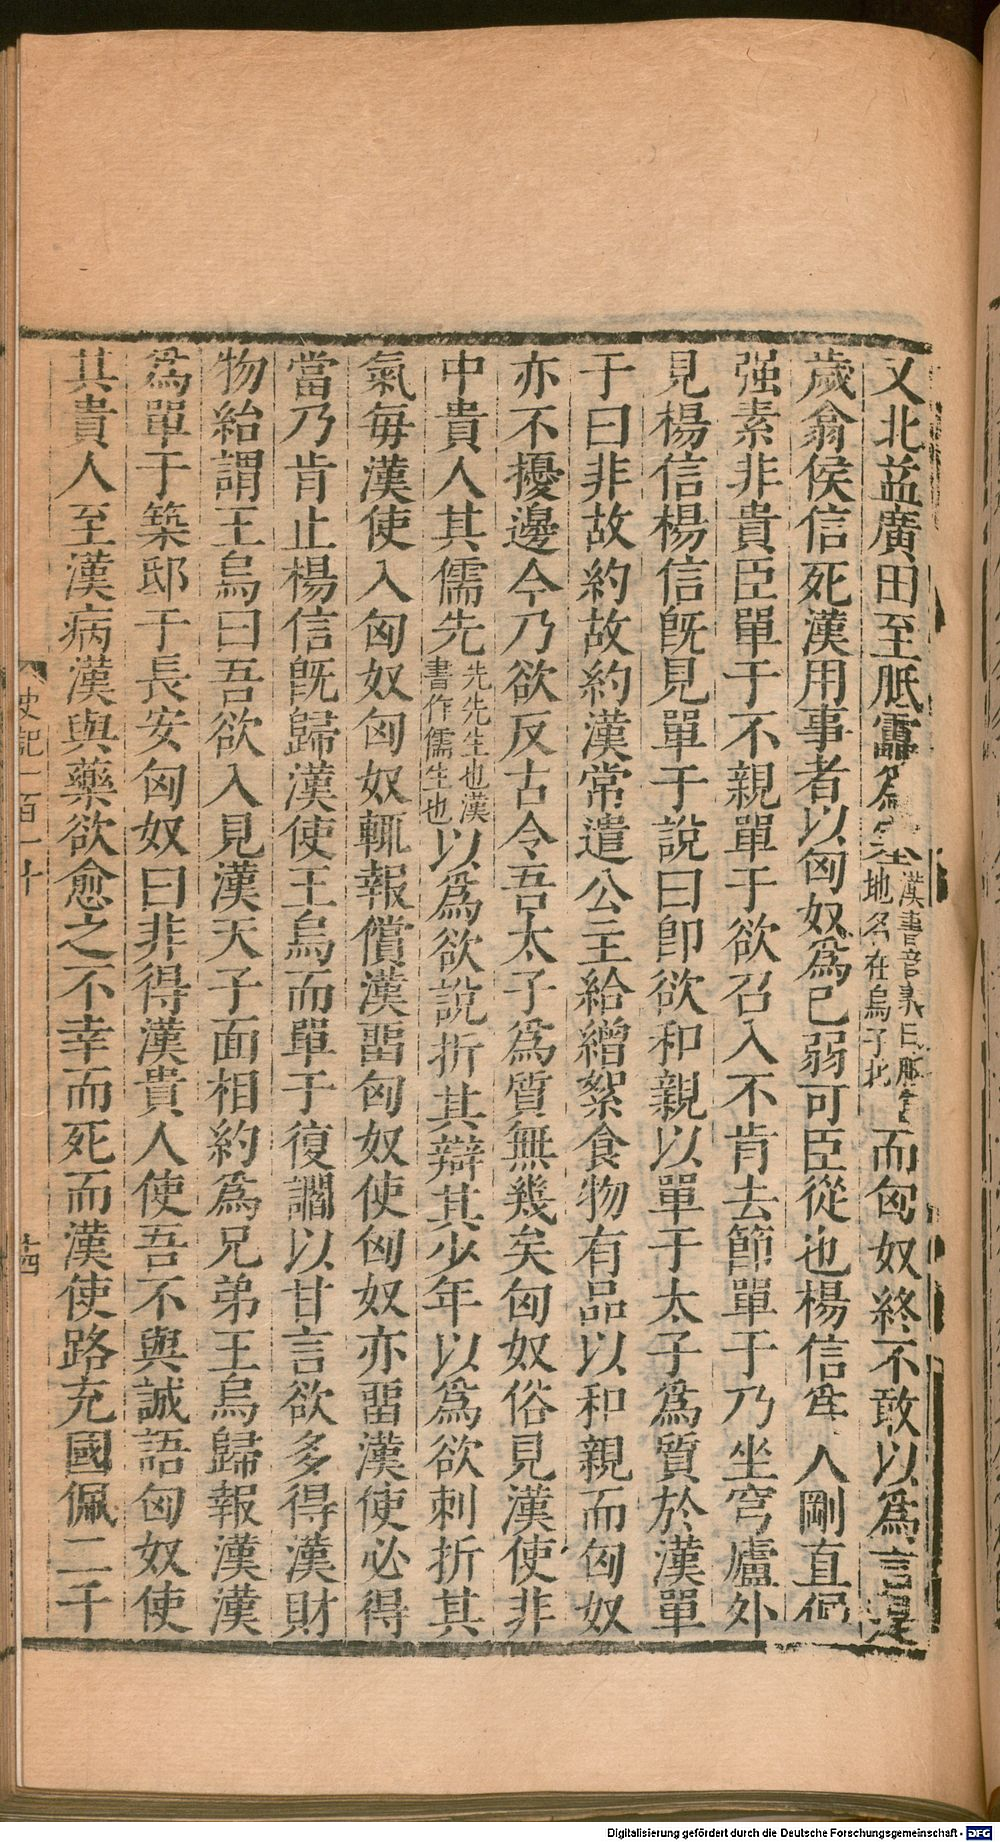 又北益廣田至胘靁爲塞漢書音義曰胘靁地名在烏孫北而匈奴終不敢以爲言是
歲翕侯信死漢用事者以匈奴爲已弱可臣從也楊信爲人剛直倔
强素非貴臣單于不親單于欲召入不肯去節單于乃坐穹廬外
見楊信楊信旣見單于說曰卽欲和親以單于太子爲質於漢單
于曰非故約故約漢常遣公主給繒絮食物有品以和親而匈奴
亦不擾邊今乃欲反古令吾太子爲質無幾矣匈奴俗見漢使非
中貴人其儒先先先生也漢書作儒生也以爲欲說折其辯其少年以爲欲刺折其
氣每漢使入匈奴匈奴輒報償漢畱匈奴使匈奴亦畱漢使必得
當乃肯止楊信旣歸漢使王烏而單于復讇以甘言欲多得漢財
物紿謂王烏曰吾欲入見漢天子面相約爲兄弟王烏歸報漢漢
爲單于築邸于長安匈奴曰非得漢貴人使吾不與誠語匈奴使
其貴人至漢病漢與藥欲愈之不幸而死而漢使路充國佩二千
史記一百一十
廿四
Digitalisierung gefördert durch die Deutsche Forschungsgemeinschaft - DFG